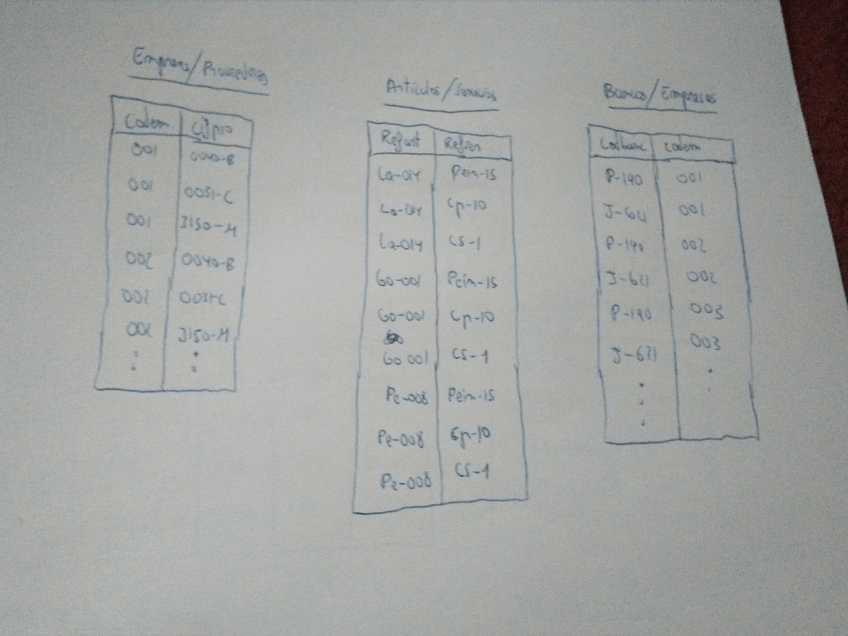 Empresa/Proveedores
Codem
001 0040-B
001 0031-C
001 3150-M
002 0040-B
002 0031-C
002 3150-M
Artículos/Servicios
Refart Refser
La-014 Pein-15
La-014 Cp-10
La-014 CS-1
Go-001 Pein-15
Go-001 Cp-10
Go 001 CS-1
Pe-008 Pein-15
Pe-008 Cp-10
Pe-008 CS-1
Bancos/Empresas
Codbanc Codem
P-190 001
J-621 001
P-190 002
J-621 002
P-190 003
J-621 003